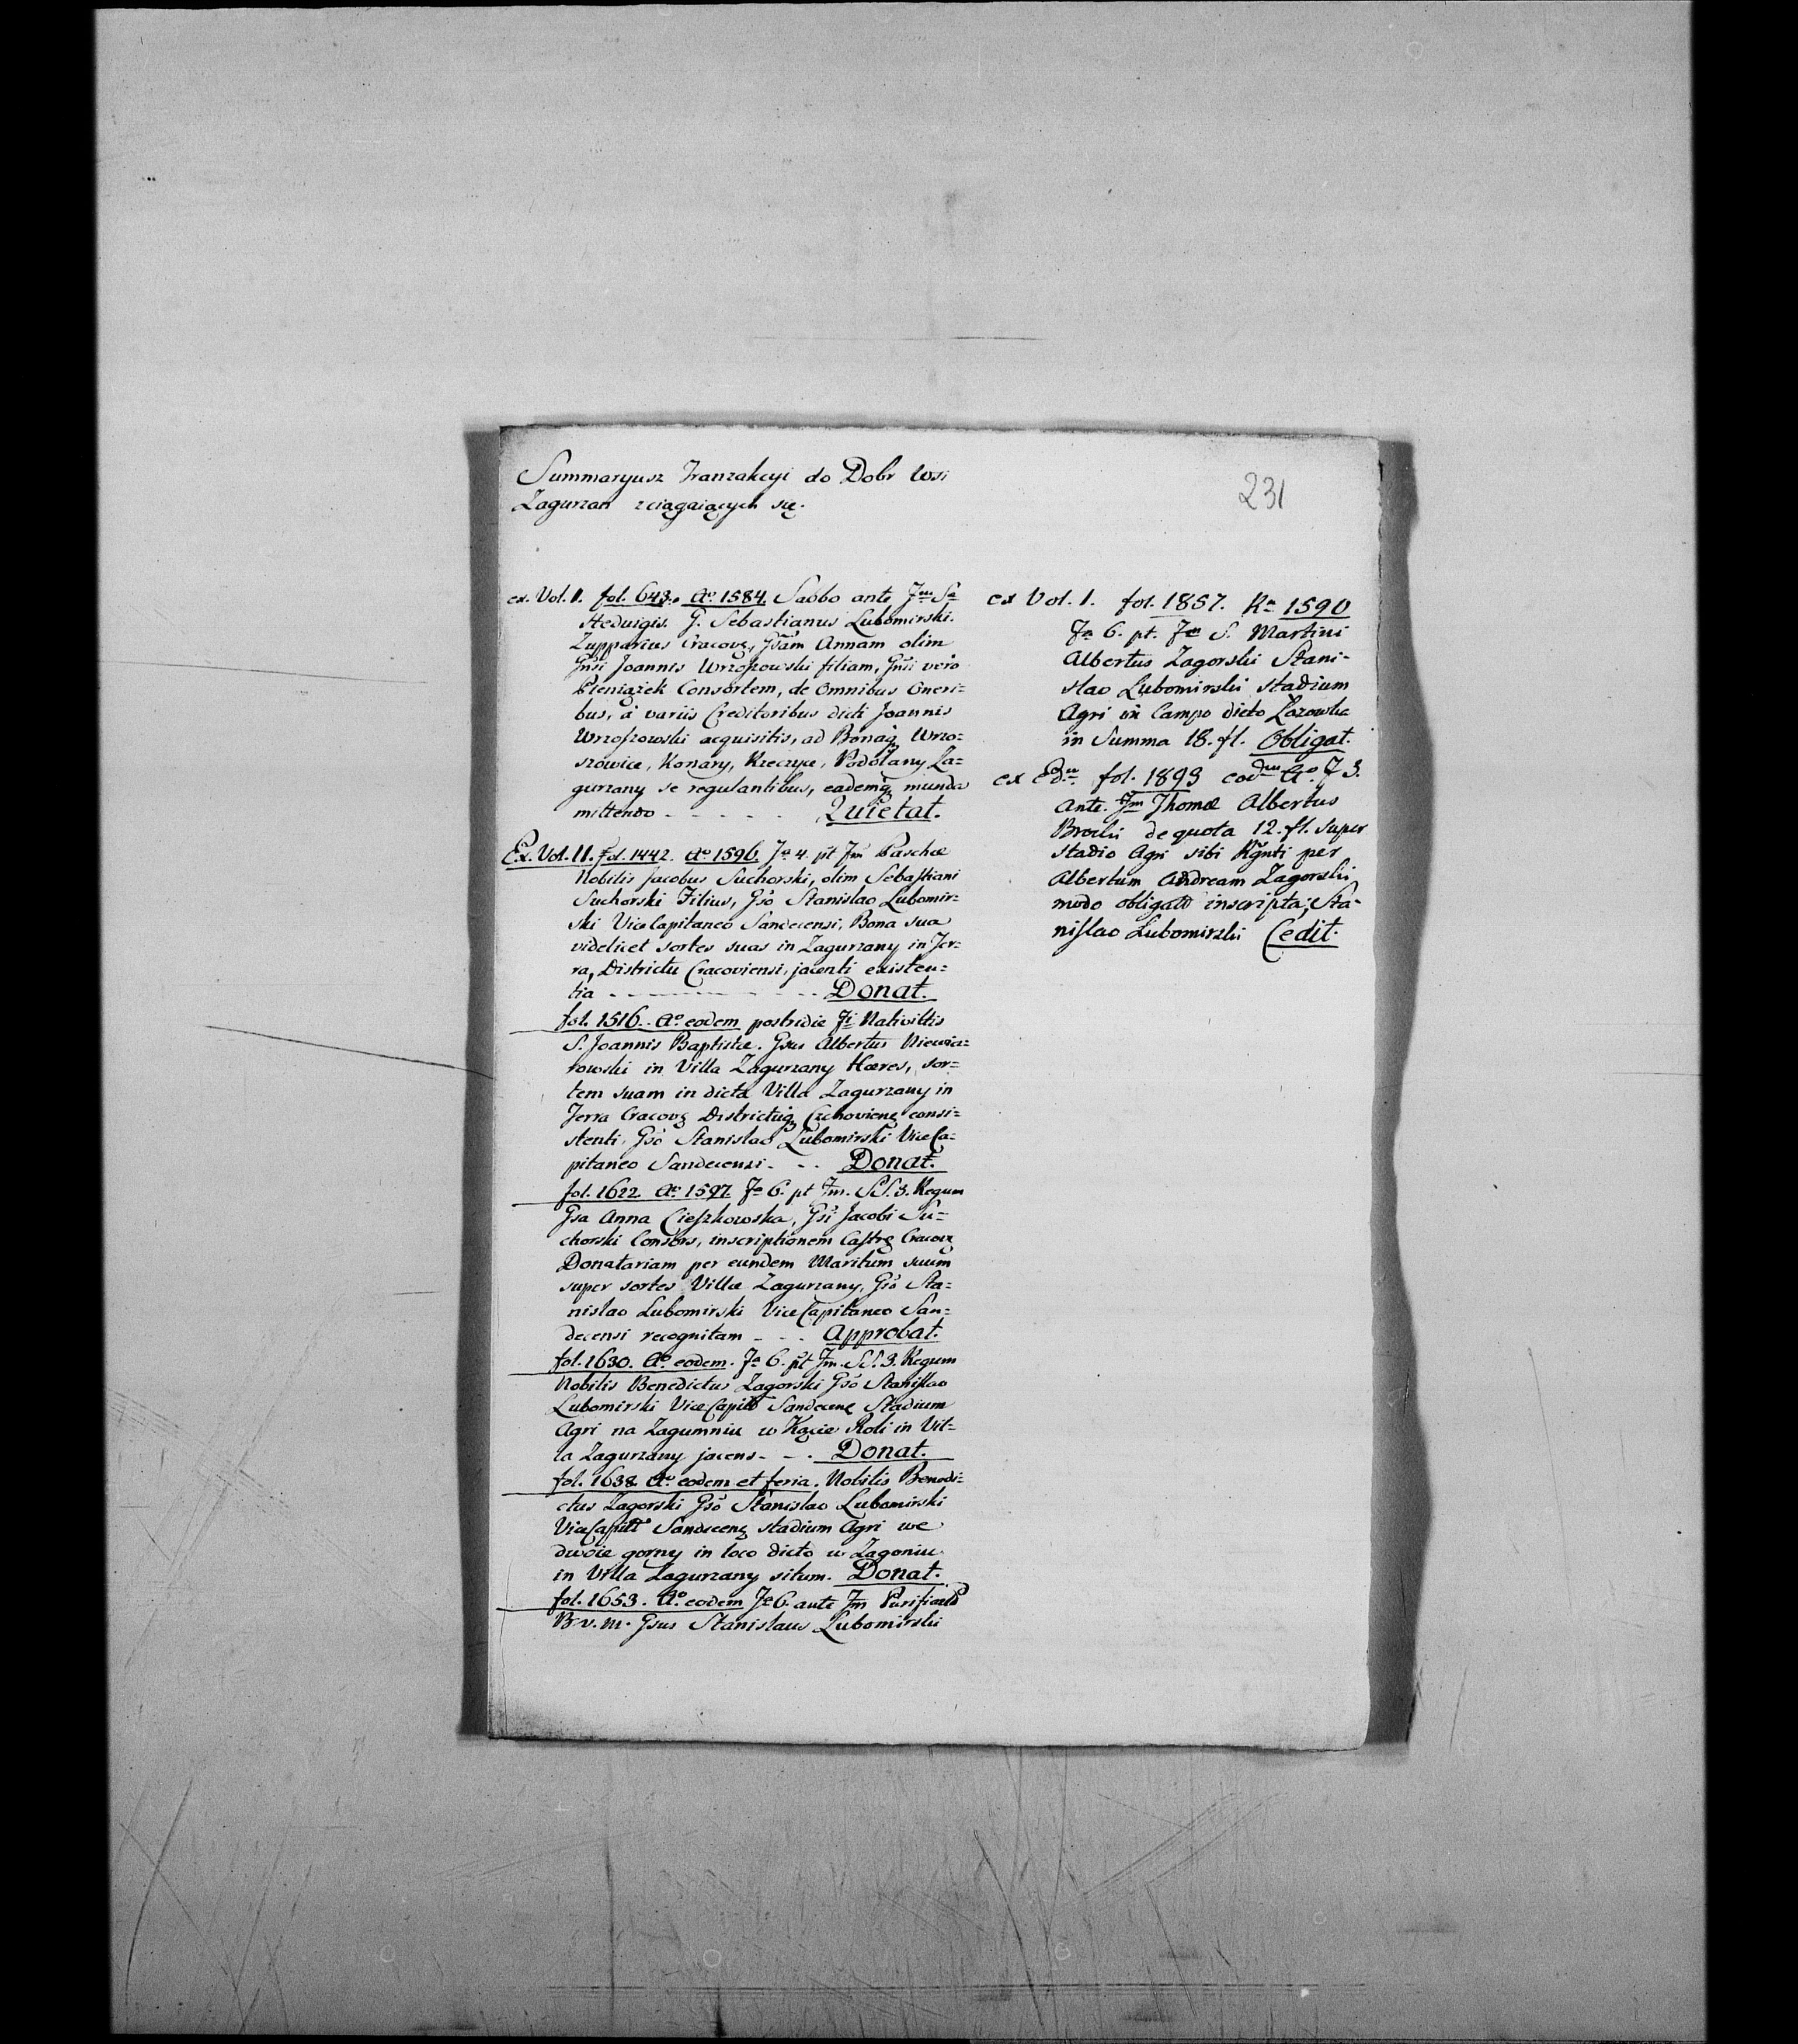 Summaryusz Tranzakcyi do Dobr Wsi
Zagurzan sciągaiących się.
231
ex. Vol. I. fol. 643. Aº 1584. Sabbo ante Fm Sæ
Hedvigis. G. Sebastianus Lubomirski.
Zupparius Cracov, Gsam Annam olim
Gnsi Joannis Wrzoszowski filiam, Gnsi vero
Pieniążek Consortem, de Omnibus Oneri=
bus, à variis Creditoribus dicti Joannis
Wrzoszowski acquisitis, ad Bonaq Wrzo=
szowice, Konary, Rzeczyce, Podolany Za=
gurzany se regulantibus, eademq munda
mittendo - - - - - Quietat.
Ex. Vol. II. fol. 1442. Aº 1596. Fa 4. pt Fm Paschæ
Nobilis Jacobus Suchorski, olim Sebastiani
Suchorski Filius, Gso Stanislao Lubomir=
ski ViceCapitaneo Sandecensi, Bona sua
videlicet sortes suas in Zagurzany in Ter=
ra, Districtu Cracoviensi, jacenti existen=
tia - - - - - - Donat.
fol. 1516. Aº eodem postridie Fi Nativittis
S. Joannis Baptistæ. Gsus Albertus Niewia=
rowski in Villa Zagurzany Hæres, sor=
tem suam in dicta Villa Zagurzany in
Terra Cracov Districtuq Czchovien consi=
stenti, Gso Stanislao Lubomirski ViceCa=
pitaneo Sandecensi - - - Donat.
fol. 1622. Aº 1597. Fa 6. pt Fm. SS. 3. Regum
Gsa Anna Cieszkowska, Gsi Jacobi Su=
chorski Consors, inscriptionem Castr Cracov
Donatariam per eundem Maritum suum
super sortes Villæ Zagurzany, Gso Sta=
nislao Lubomirski ViceCapitaneo San=
decensi recognitam - - - Approbat.
fol. 1630. Aº eodem. Fa 6. pt Fm. SS. 3. Regum
Nobilis Benedictus Zagorski Gso Stanislao
Lubomirski ViceCapit Sandecen Stadium
Agri na Zagumniu w Kącie Roli in Vil=
la Zagurzany jacens - - - Donat.
fol. 1638. Aº eodem et feria. Nobilis Benedi=
ctus Zagorski Gso Stanislao Lubomirski
ViceCapitt Sandecen stadium Agri we
dwoie gorny in loco dicto w Zagoniu
in Villa Zagurzany situm. Donat.
fol. 1653. Aº eodem Fa 6. ante Fm Purificatt
B. V. M. Gsus Stanislaus Lubomirski
ex Vol. I. fol. 1857. Rº 1590
Fa 6. pt. Fm S. Martini
Albertus Zagorski Stani=
slao Lubomirski stadium
Agri in Campo dicto Łozowka
in Summa 18. fl. Obligat.
ex Edm fol. 1893 eodm Aº. F 3.
Ante. Fm Thomæ Albertus
Brocki de quota 12. fl. super
stadio Agri sibi Rgnti per
Albertum Andream Zagorski
modo obligato inscripta, Sta=
nislao Lubomirski Cedit.